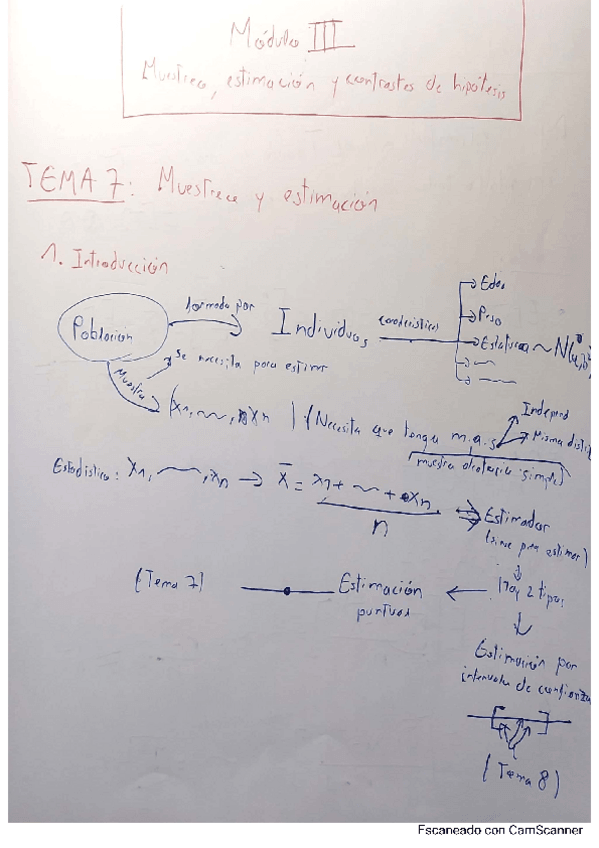 Módulo III
Muestreo, estimación y contrastes de hipótesis
TEMA 7: Muestreo y estimación
1. Introducción
Población
formada por
Individuos
características
Edad
Peso
Estatura ~ N(μ,σ²)
Muestra
Se necesita para estimar
(x1, ~, xn) (Necesita que tenga m.a.s
Independ
Misma distrib
muestra aleatoria simple)
Estadístico: x1, ~, xn → X̄ = x1 + ~ + xn / n
⇒ Estimador
(sirve para estimar)
Hay 2 tipos
Estimación puntual
(Tema 7)
Estimación por
intervalos de confianza
(Tema 8)
Escaneado con CamScanner